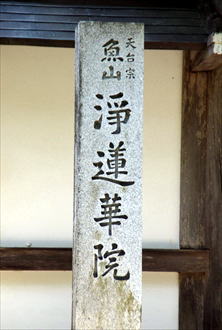 天台宗
魚山
淨蓮華院